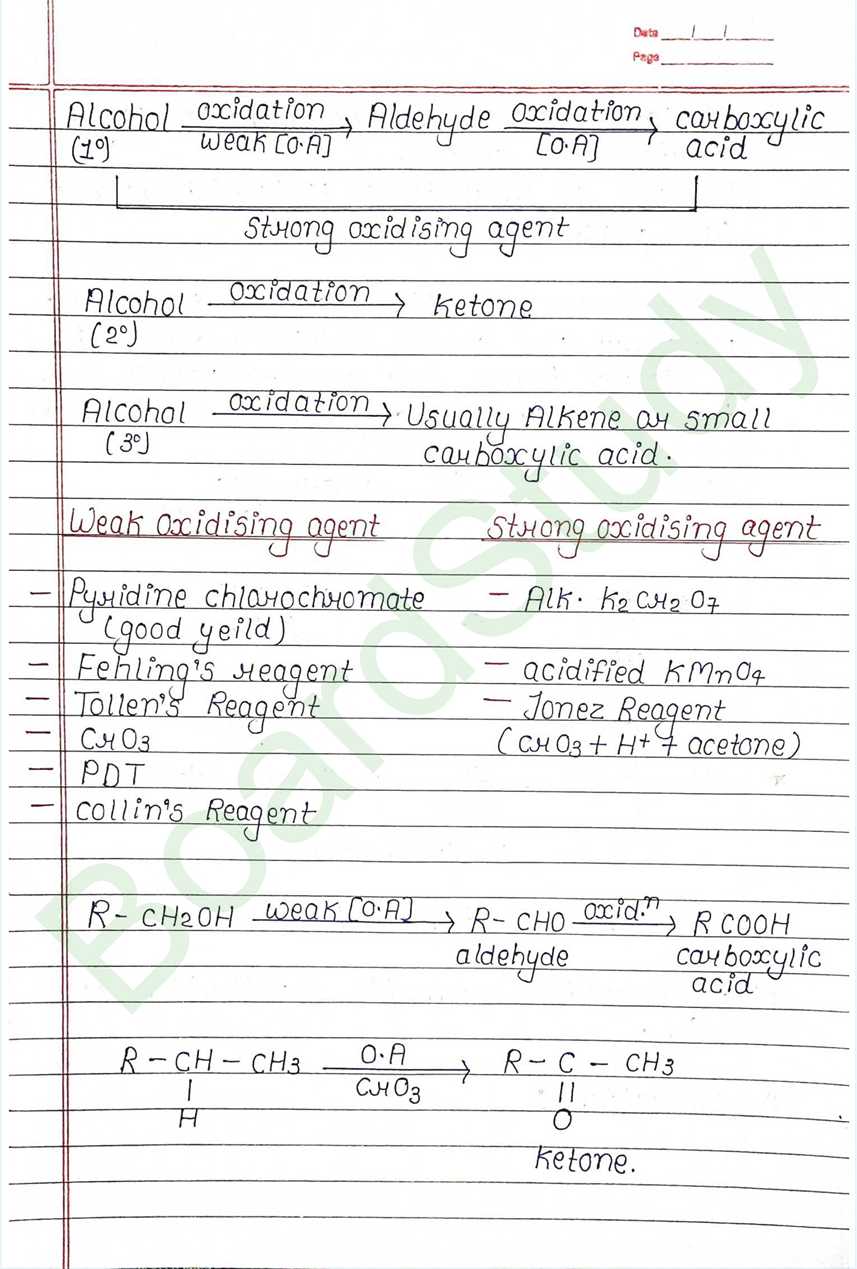 Date / /
Page
Alcohol oxidation weak [O.A] → Aldehyde oxidation [O.A] → carboxylic
(1°) acid
Strong oxidising agent
Alcohol oxidation → ketone
(2°)
Alcohol oxidation → Usually Alkene or small
(3°) carboxylic acid.
Weak oxidising agent Strong oxidising agent
– Pyridine chlorochromate – Alk. K2Cr2O7
(good yeild)
– Fehling's reagent – acidified KMnO4
– Tollen's Reagent – Jonez Reagent
– CrO3 (CrO3 + H+ + acetone)
– PDT
– collin's Reagent
R – CH2OH weak [O.A] → R – CHO oxid.n → R COOH
aldehyde carboxylic
acid
R – CH – CH3 O.A CrO3 → R – C – CH3
| ||
H O
ketone.
BoardStudy